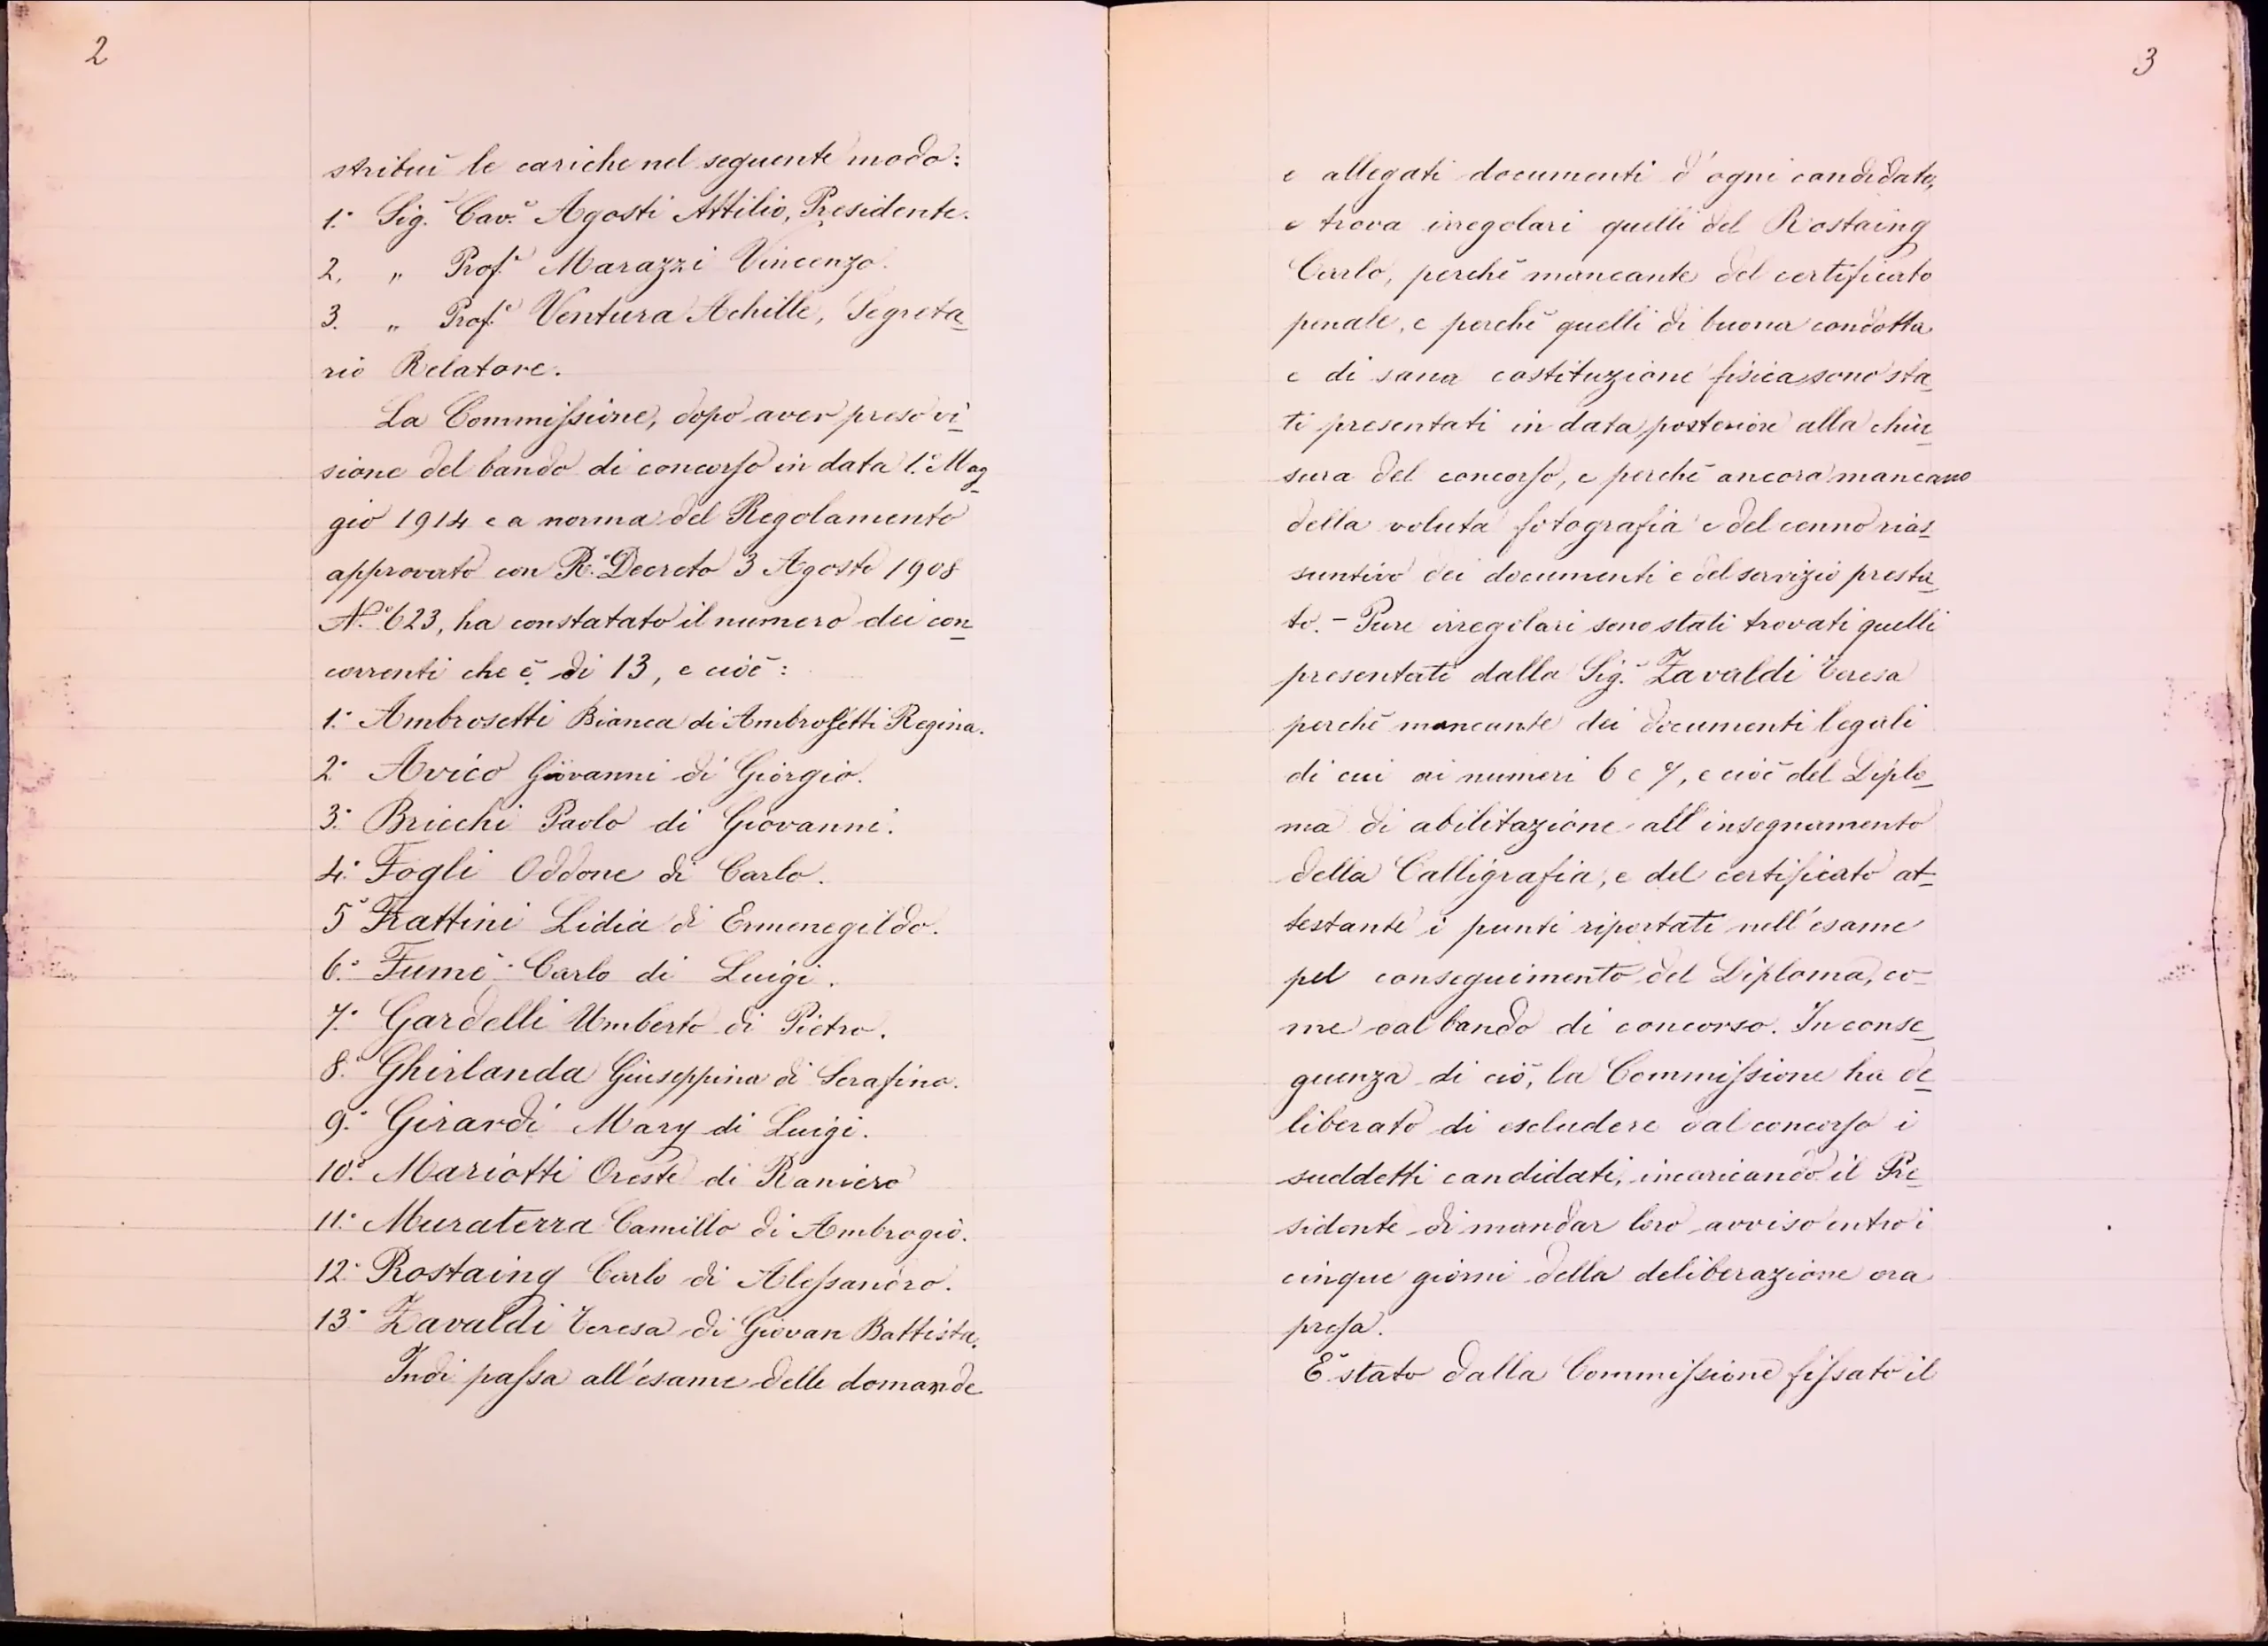 2
stribuì le cariche nel seguente modo:
1.° Sig. Cav.e Agosti Attilio, Presidente.
2. „ Prof.e Marazzi Vincenzo.
3. „ Prof.e Ventura Achille, Segreta-
rio Relatore.
La Commissione, dopo aver preso vi-
sione del bando di concorso in data 1.° Mag-
gio 1914 e a norma del Regolamento
approvato con R.° Decreto 3 Agosto 1908
N.° 623, ha constatato il numero dei con-
correnti che è di 13, e cioè:
1.° Ambrosetti Bianca di Ambrosetti Regina.
2.° Avico Giovanni di Giorgio.
3.° Bricchi Paolo di Giovanni.
4.° Fogli Oddone di Carlo.
5.° Frattini Lidia di Ermenegildo.
6.° Fumè Carlo di Luigi.
7.° Gardelli Umberto di Pietro.
8.° Ghirlanda Giuseppina di Serafino.
9.° Girardi Mary di Luigi.
10.° Mariotti Oreste di Raniero
11.° Muraterra Camillo di Ambrogio.
12.° Rostaing Carlo di Alessandro.
13.° Zavaldi Teresa di Giovan Battista.
Indi passa all'esame delle domande
3
e allegati documenti d'ogni candidato,
e trova irregolari quelli del Rostaing
Carlo, perchè mancante del certificato
penale, e perchè quelli di buona condotta
e di sana costituzione fisica sono sta-
ti presentati in data posteriore alla chiu-
sura del concorso, e perchè ancora mancano
della voluta fotografia e del cenno rias-
suntivo dei documenti e del servizio presta-
to. – Pure irregolari sono stati trovati quelli
presentati dalla Sig.a Zavaldi Teresa
perchè mancante dei documenti legali
di cui ai numeri 6 e 7, e cioè del Diplo-
ma di abilitazione all'insegnamento
della Calligrafia, e del certificato at-
testante i punti riportati nell'esame
pel conseguimento del Diploma, co-
me dal bando di concorso. In conse-
guenza di ciò, la Commissione ha de-
liberato di escludere dal concorso i
suddetti candidati, incaricando il Pre-
sidente di mandar loro avviso entro i
cinque giorni della deliberazione ora
presa.
È stato dalla Commissione fissato il